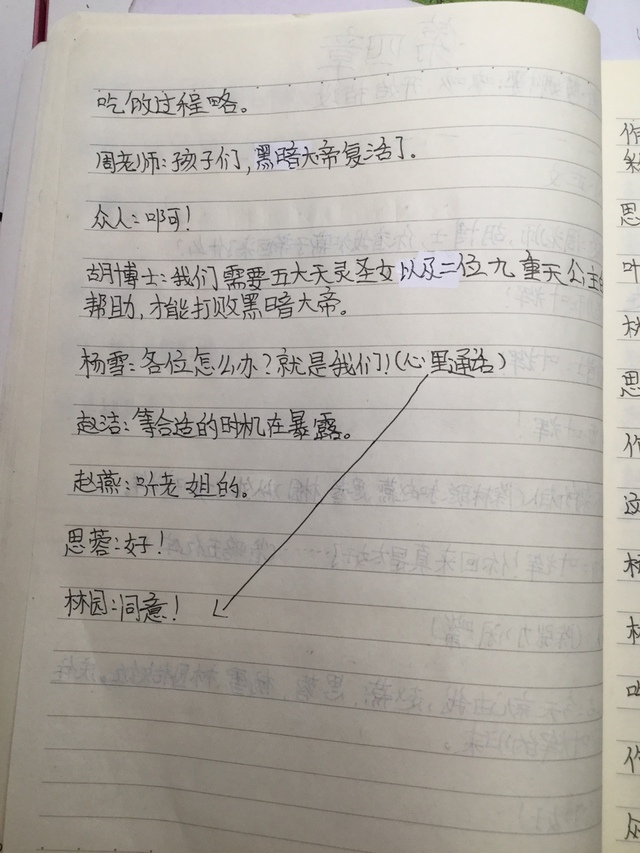 吃饭过程略。
周老师:孩子们,黑暗大帝复活了。
众人:啊!
胡博士:我们需要五大天灵圣女以及二位九重天公主的
帮助,才能打败黑暗大帝。
杨雪:各位怎么办?就是我们!(心里通话)
赵洁:等合适的时机在暴露。
赵燕:听老姐的。
思蓉:好!
林园:同意!